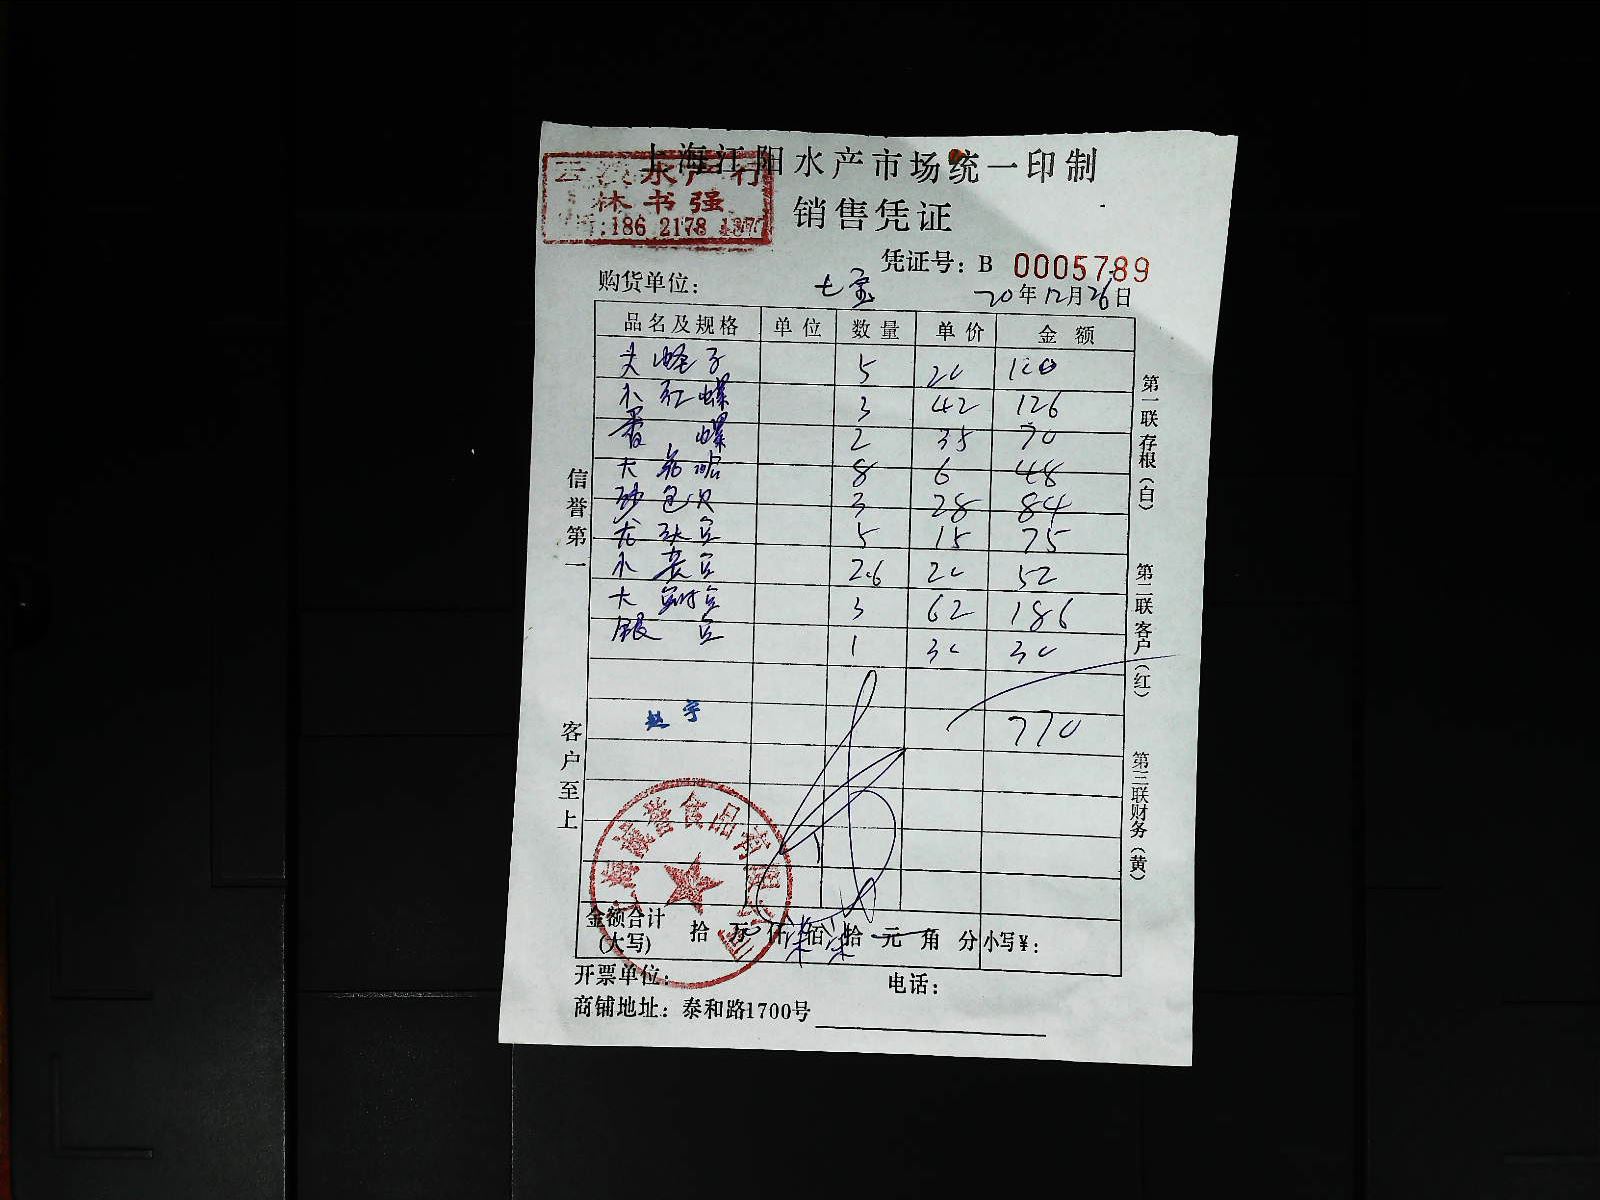 上海江阳水产市场统一印制
水产行
林书强
186 2178 1377
销售凭证
凭证号：B 0005789
购货单位： 七宝 20年12月26日
品名及规格 单位 数量 单价 金额
蛏子 5 20 100
小红螺 3 42 126
香螺 2 35 70
大 8 6 48
3 28 84
龙头 5 15 75
小黄 2.6 20 52
大 3 62 186
银 1 30 30
赵宇 770
信誉第一
客户至上
第一联存根（白）
第二联客户（红）
第三联财务（黄）
上海诚誉食品有限公司
金额合计(大写) 拾 万 仟 柒佰 柒拾 元 角 分 小写￥：
开票单位： 电话：
商铺地址：泰和路1700号